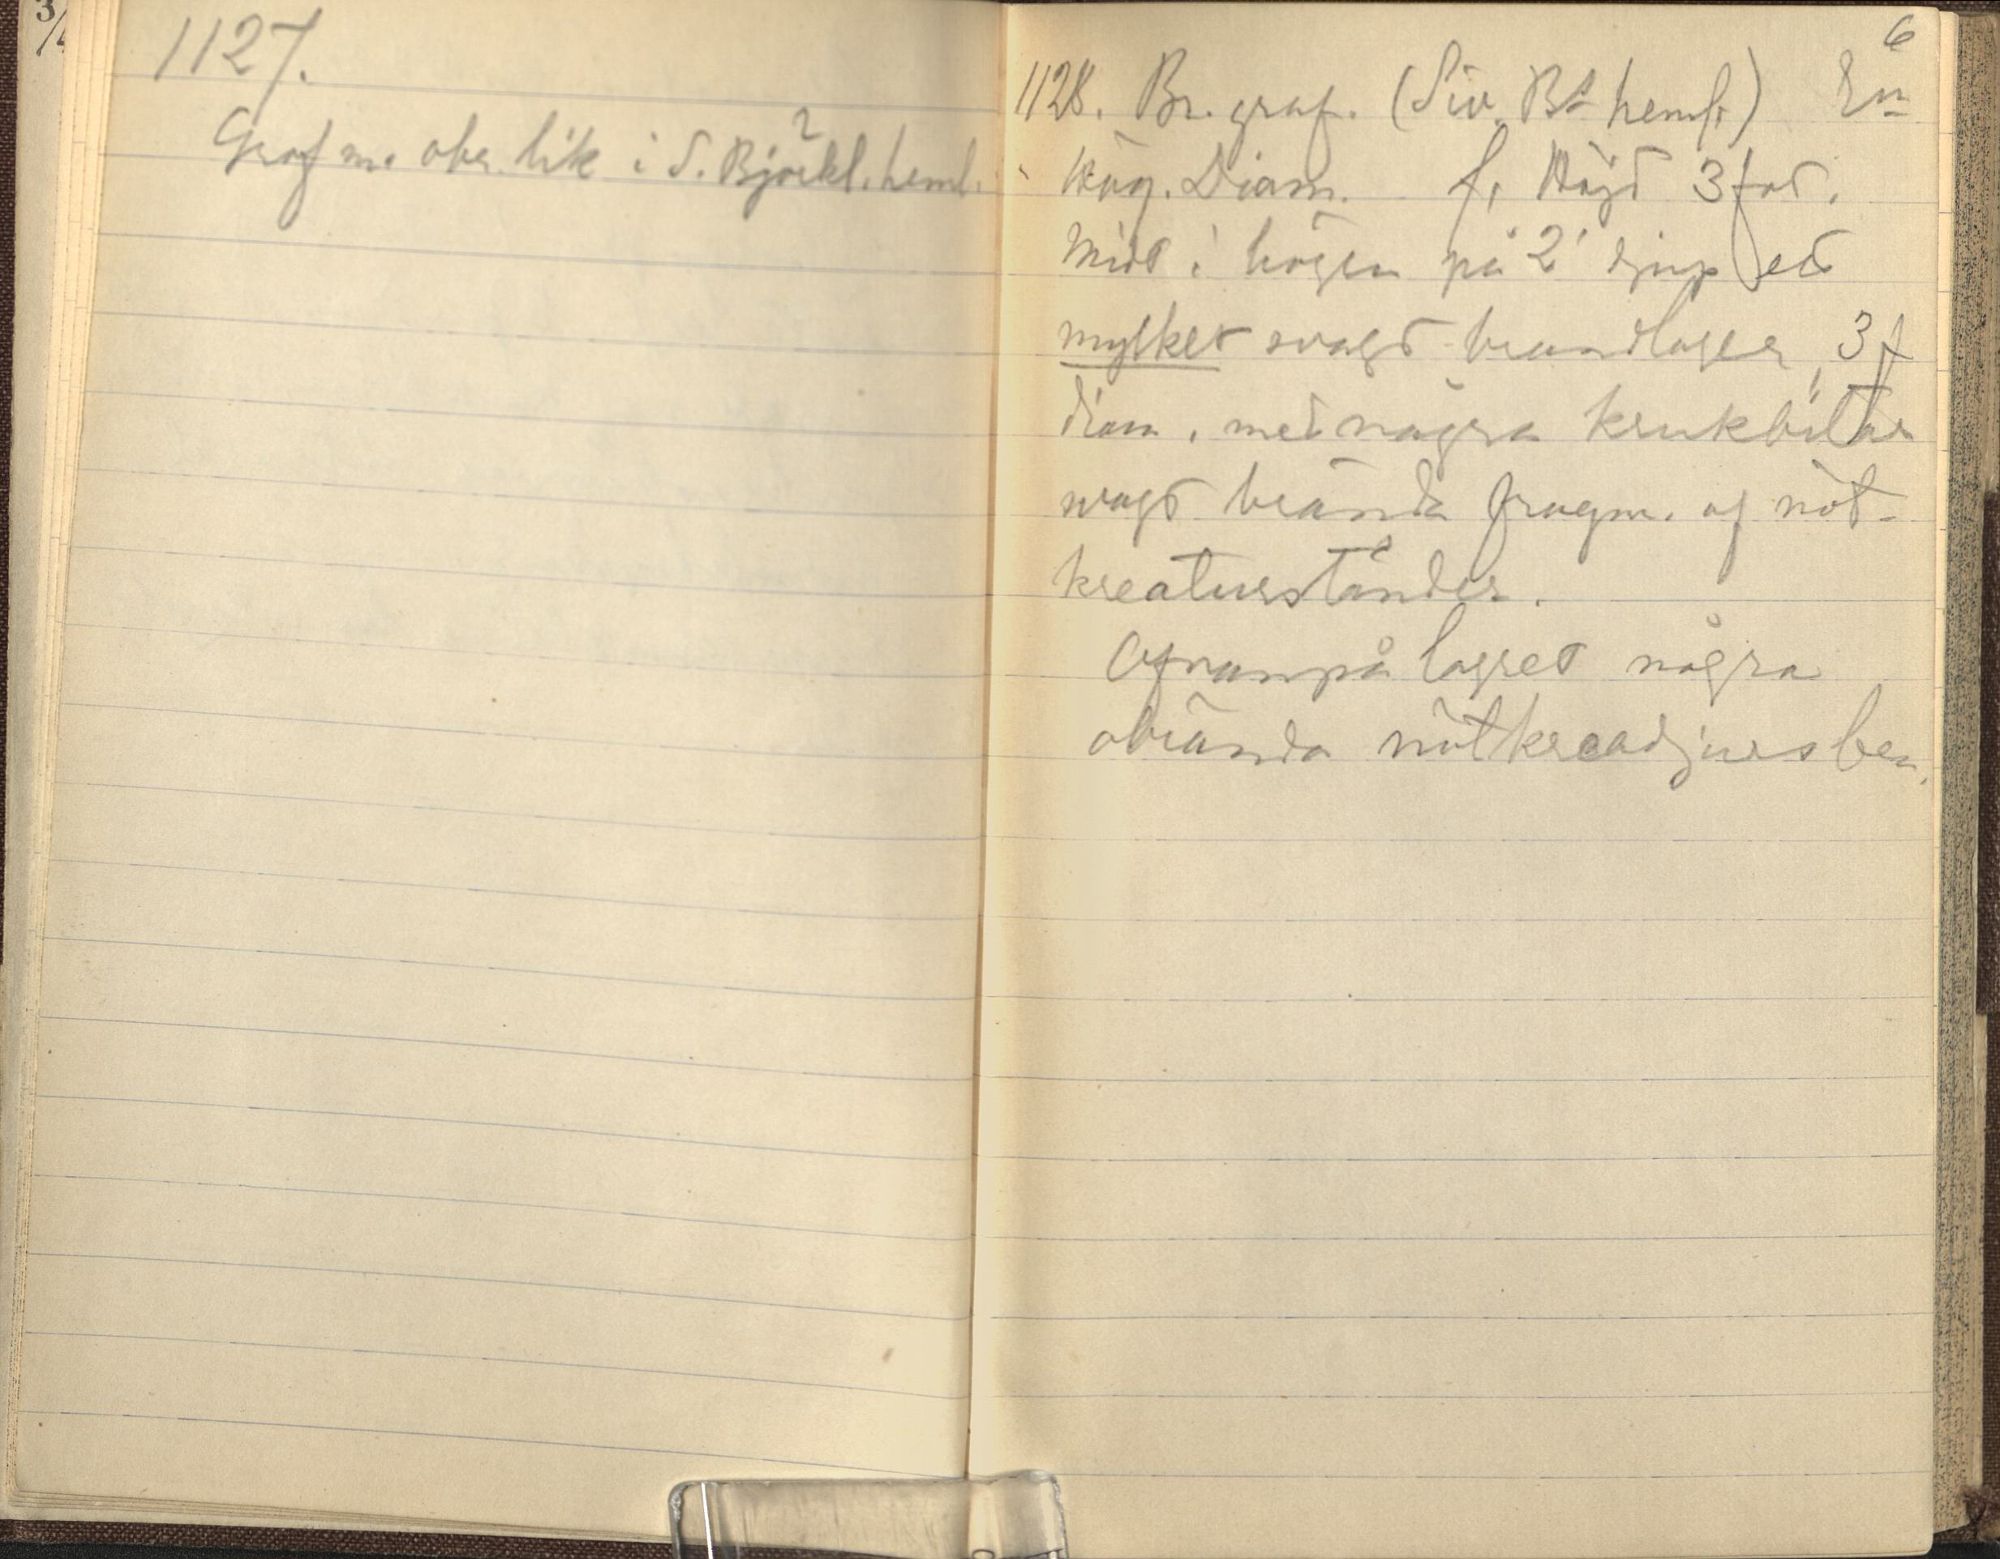 1127.
Graf m. obr. lik i S. Björkl. heml.
6
1128. Br. graf. (Siv. Bs heml.) En
hög. Diam. f. Höjd 3 fot.
Midt i högen på 2' djup ett
mycket svagt brandlager, 3 f
diam. med några krukbitar
svagt brända fragm. af nöt-
kreaturständer.
Ofvanpå lagret några
obrända nötkreadjursben.